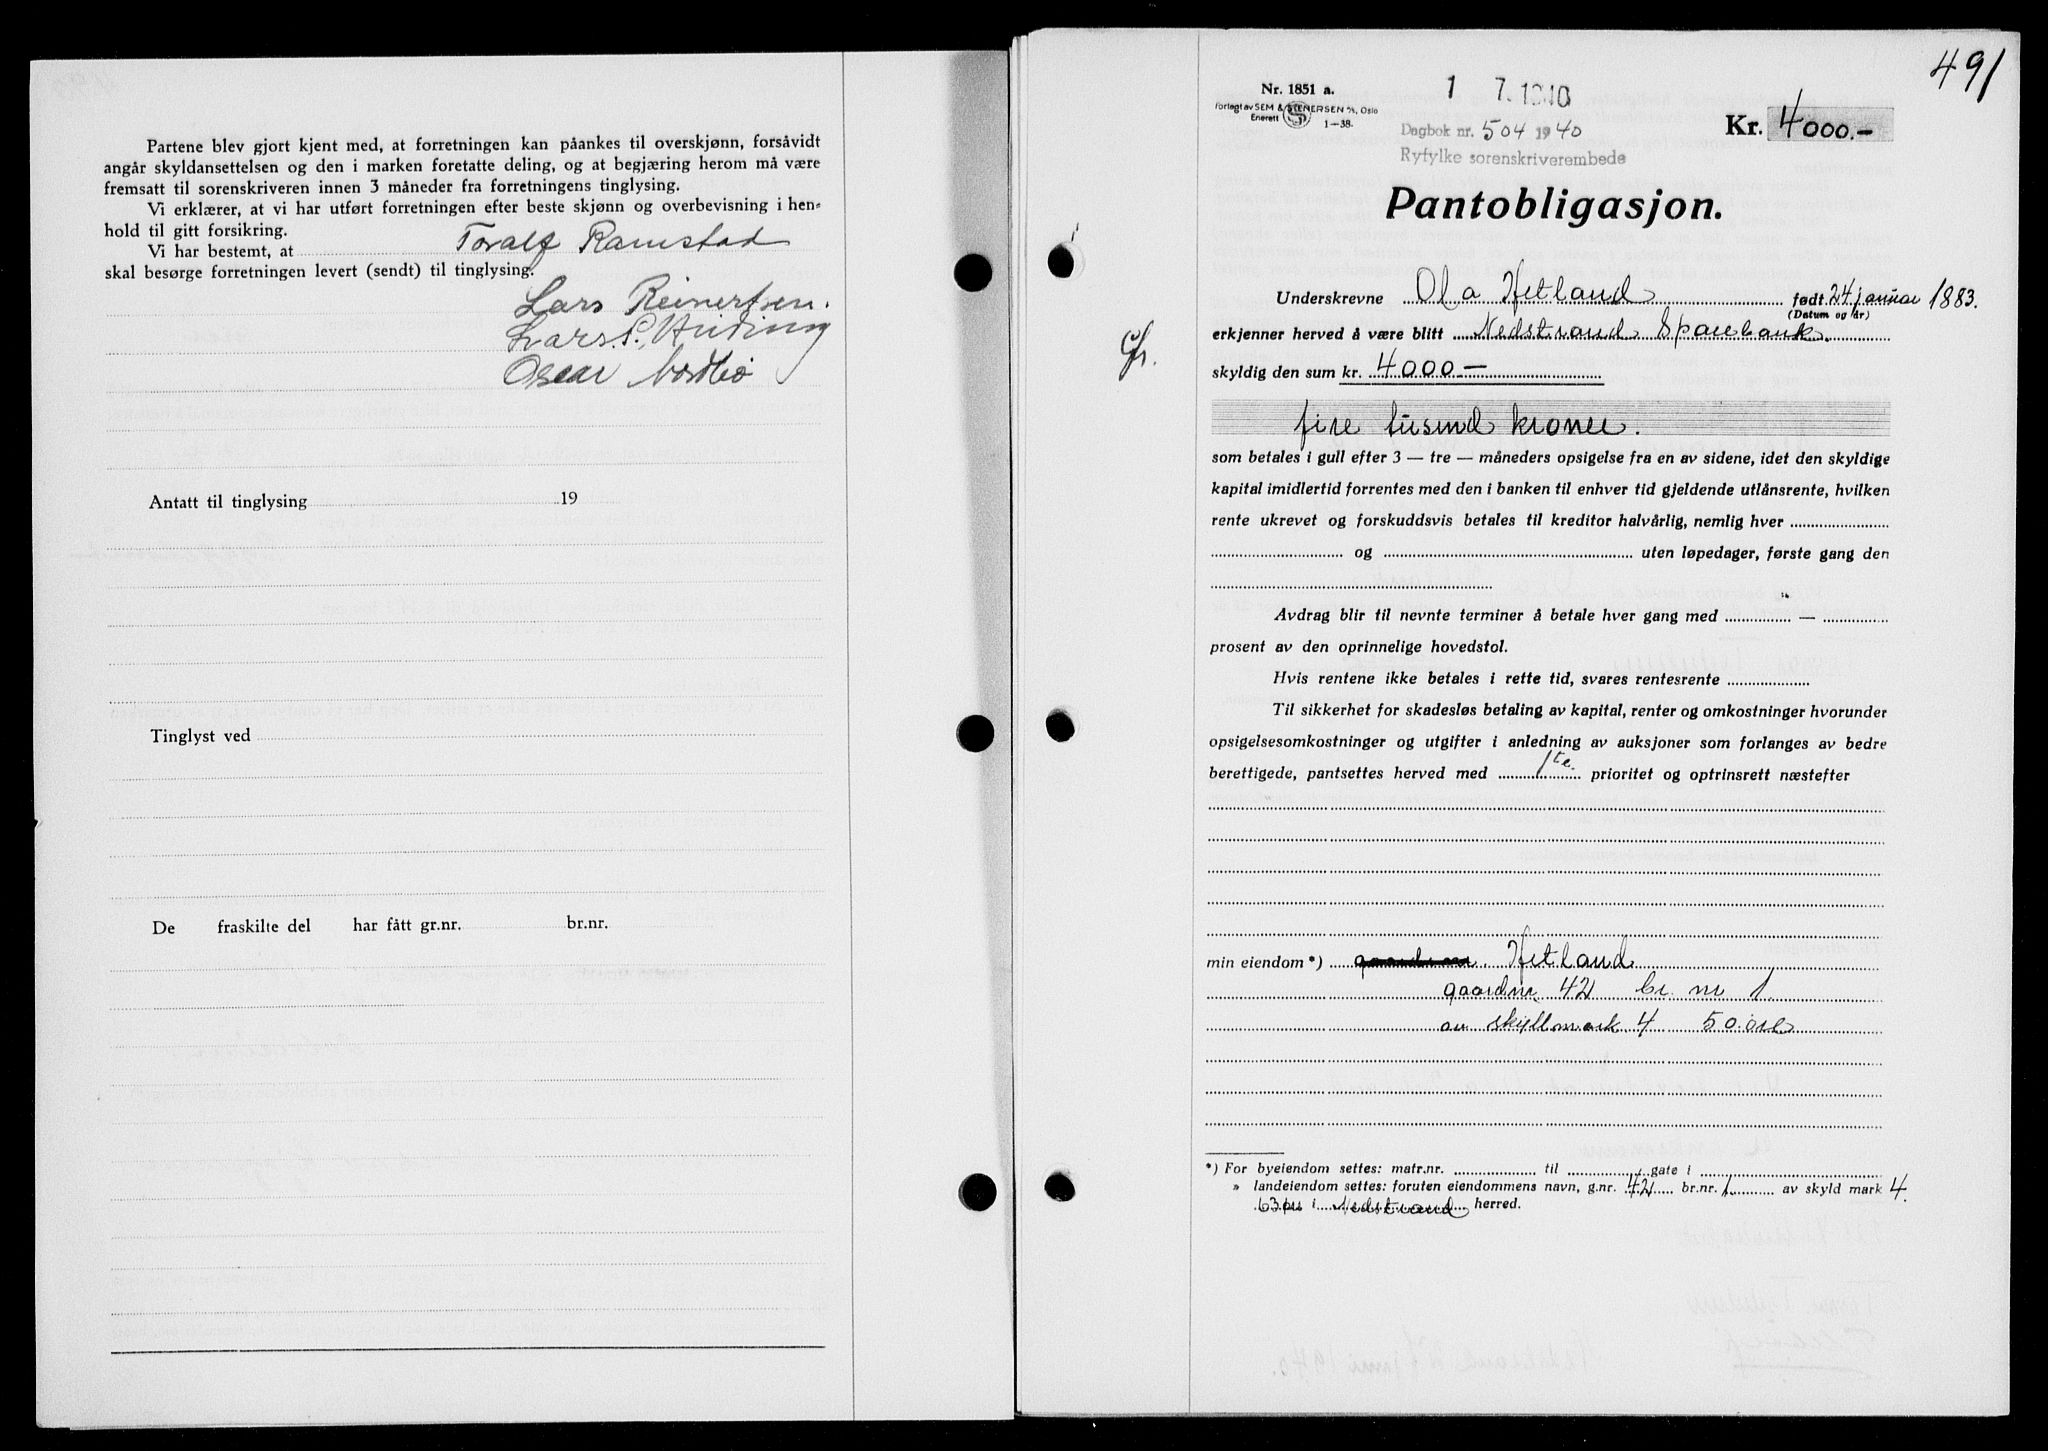 Partene blev gjort kjent med, at forretningen kan påankes til overskjønn, forsåvidt
angår skyldansettelsen og den i marken foretatte deling, og at begjæring herom må være
fremsatt til sorenskriveren innen 3 måneder fra forretningens tinglysing.
Vi erklærer, at vi har utført forretningen efter beste skjønn og overbevisning i hen-
hold til gitt forsikring.
Vi har bestemt, at Toralf Ramstad
skal besørge forretningen levert (sendt) til tinglysing.
Lars Reinertsen.
Lars S.
Oscar Nordbö
Antatt til tinglysing 19
Tinglyst ved
De fraskilte del har fått gr.nr. br.nr.
491
Nr. 1851 a.
Forlagt av SEM & STENERSEN A/S, Oslo
Enerett
1—38.
1 7. 1940
Dagbok nr. 504 1940
Ryfylke sorenskriverembede
Kr. 4000.-
Pantobligasjon.
Underskrevne Ola Hetland født 24 januar 1883.
(Datum og år)
erkjenner herved å være blitt Nedstrand Sparebank.
skyldig den sum kr. 4000 —
fire tusind kroner.
som betales i gull efter 3 — tre — måneders opsigelse fra en av sidene, idet den skyldige
kapital imidlertid forrentes med den i banken til enhver tid gjeldende utlånsrente, hvilken
rente ukrevet og forskuddsvis betales til kreditor halvårlig, nemlig hver
og uten løpedager, første gang den
Avdrag blir til nevnte terminer å betale hver gang med —
prosent av den oprinnelige hovedstol.
Hvis rentene ikke betales i rette tid, svares rentesrente
Til sikkerhet for skadesløs betaling av kapital, renter og omkostninger hvorunder
opsigelsesomkostninger og utgifter i anledning av auksjoner som forlanges av bedre
berettigede, pantsettes herved med 1te. prioritet og optrinsrett næstefter
min eiendom *) Hetland
gaardnr. 42 br. nr 1.
av skyldmark 4 50 øre
*) For byeiendom settes: matr.nr. til gate i
» landeiendom settes: foruten eiendommens navn, g.nr. 42 br.nr. 1. av skyld mark 4.
i Nedstrand herred.